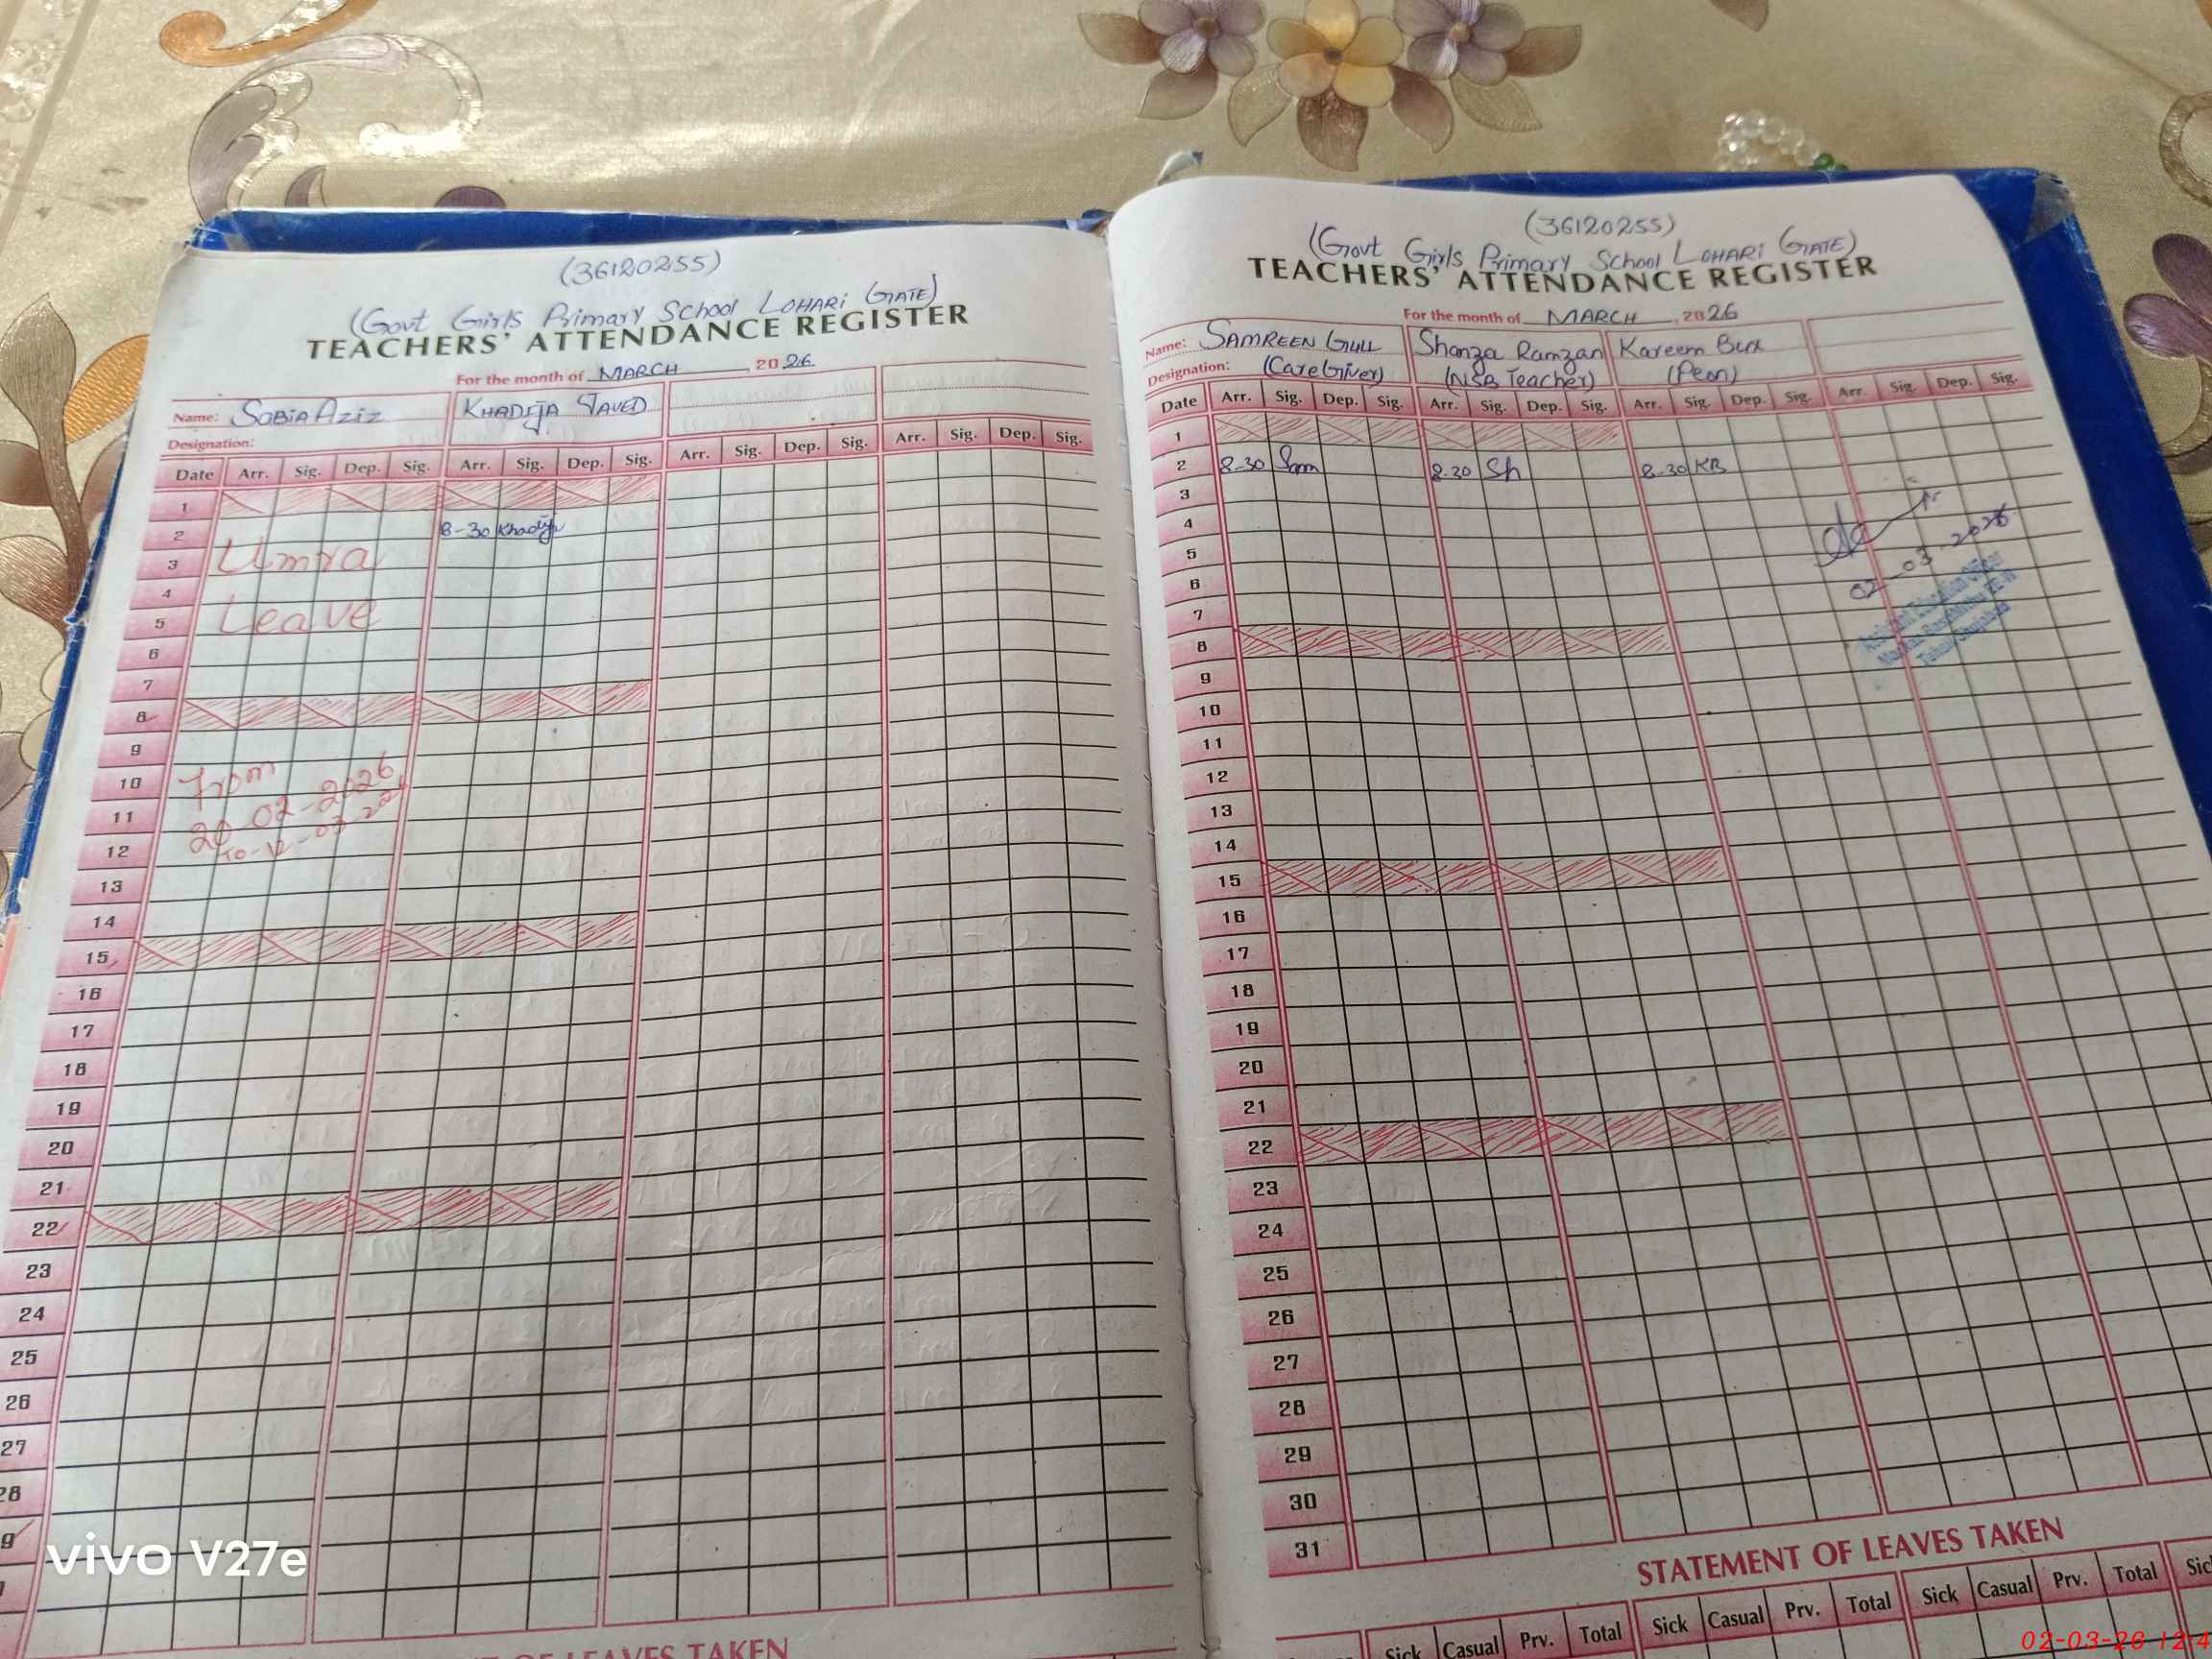 (36120255)
(Govt Girls Primary School LOHARI GATE)
TEACHERS' ATTENDANCE REGISTER
For the month of MARCH, 2026
Name: SOBIA AZIZ KHADIJA JAVED
Designation:
Date Arr. Sig. Dep. Sig. Arr. Sig. Dep. Sig. Arr. Sig. Dep. Sig. Arr. Sig. Dep. Sig.
1
2 8-30 Khadija
3 Umra
4
5 Leave
6
7
8
9
10 From
11 20-02-2026
12 to-12-03-202
13
14
15
16
17
18
19
20
21
22
23
24
25
26
27
28
9
OF LEAVES TAKEN
(36120255)
(Govt Girls Primary School LOHARI GATE)
TEACHERS' ATTENDANCE REGISTER
For the month of MARCH, 2026
Name: SAMREEN GULL Shanza Ramzan Kareem Bux
Designation: (CareGiver) (NSB Teacher) (Peon)
Date Arr. Sig. Dep. Sig. Arr. Sig. Dep. Sig. Arr. Sig. Dep. Sig. Arr. Sig. Dep. Sig.
1
2 8-30 Sam 8-30 Sh 8-30 KB
3
4
5
02-03-2026
6
7
Assistant Education Officer
8
9
10
11
12
13
14
15
16
17
18
19
20
21
22
23
24
25
26
27
28
29
30
31
STATEMENT OF LEAVES TAKEN
Sick Casual Prv. Total Sick Casual Prv. Total Sick Casual Prv. Total Sic
vivo V27e
02-03-26 12:4